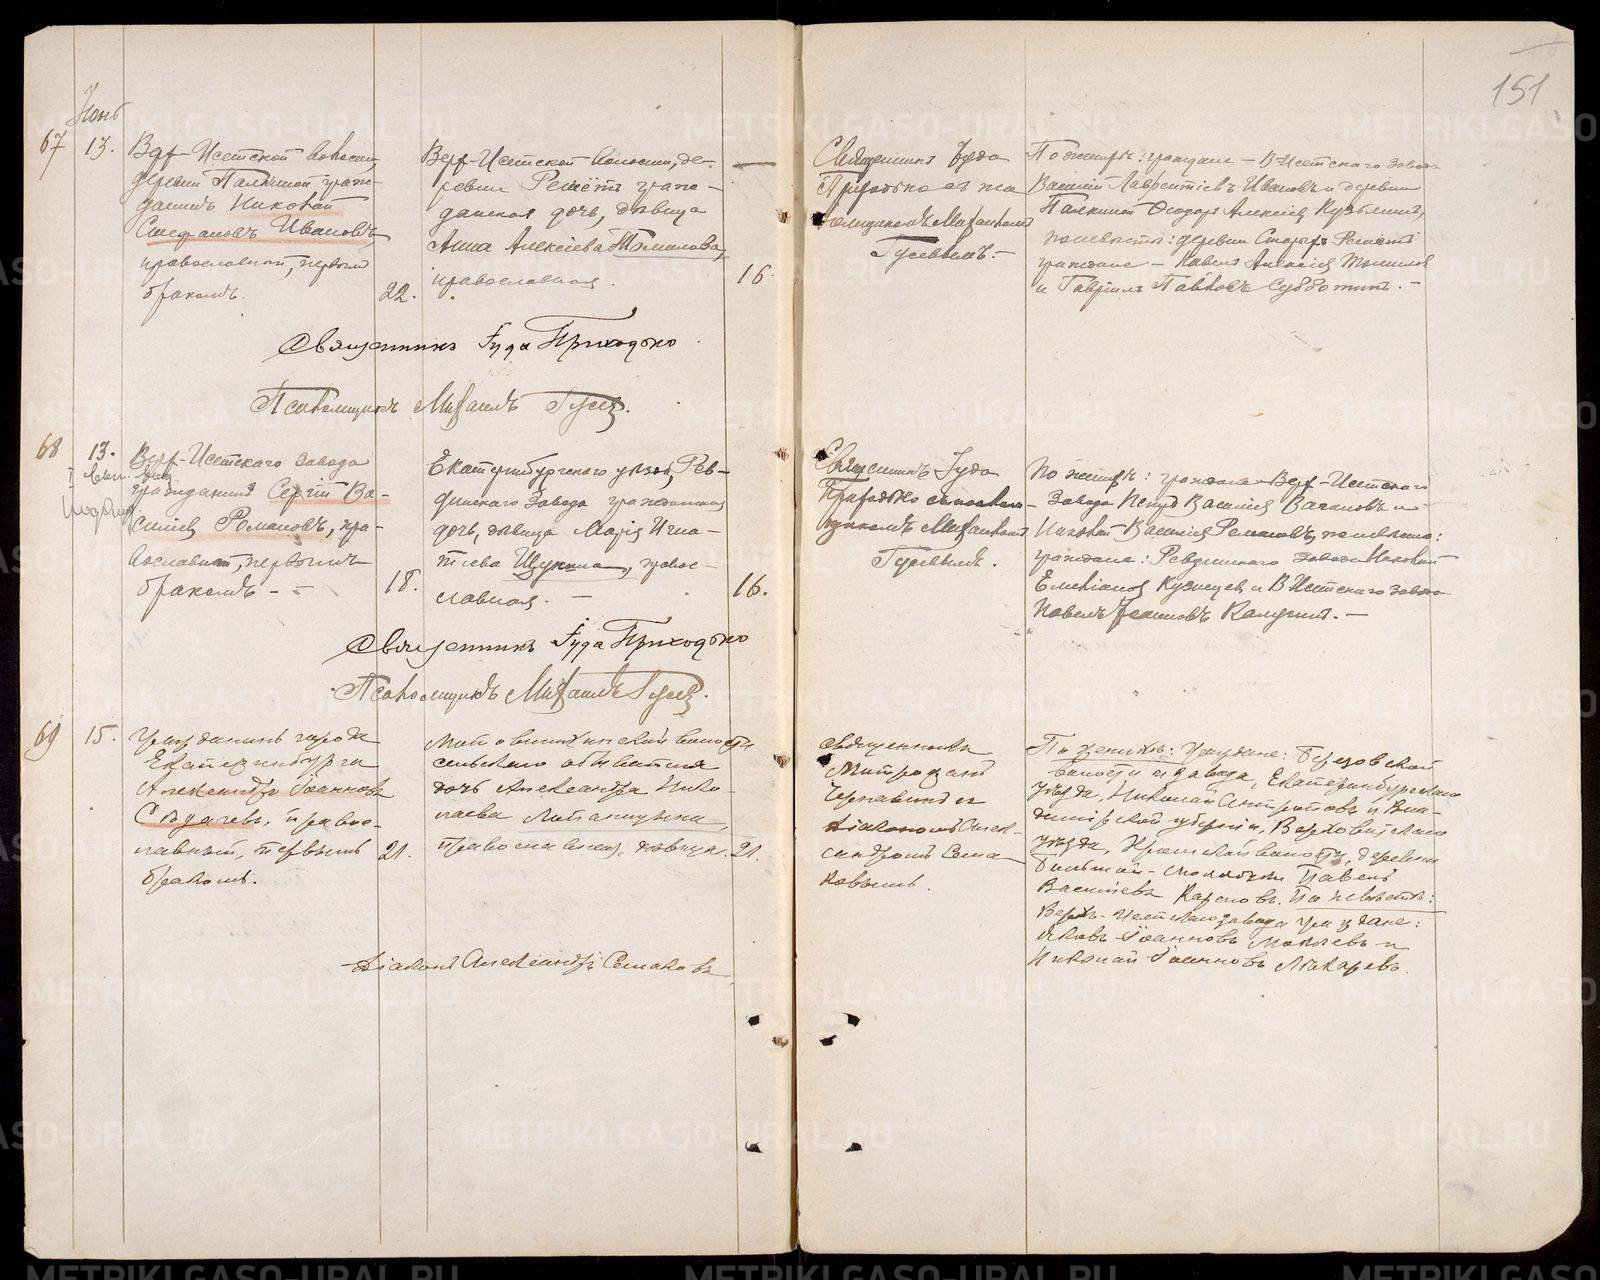 151
Июнь
67
13.
Верх-Исетской волости,
деревни Палкиной граж-
данинъ Николай
Стефановъ Ивановъ,
православный, первымъ
бракомъ.
22.
Верх-Исетской волости, де-
ревни Решётъ граж-
данская дочь, дѣвица
Анна Алексіева Томилова,
православная.
16.
Священникъ Іуда
Приходько съ пса
ломщикомъ Михаиломъ
Гусевымъ. -
По женихѣ: граждане - В-Исетскаго завода
Василій Лаврентіевъ Ивановъ и деревни
Палкиной Ѳеодоръ Алексіев
по невѣстѣ: деревни Старыхъ Решетъ
граждане - Павелъ Алексіев Томилов
и Гавріилъ Павловъ Субботинъ. -
Священникъ Іуда Приходько
Псаломщикъ Михаилъ Гусев.
68
13.
Верх-Исетскаго завода
гражданинъ Сергій Ва-
силіев Романовъ, пра-
вославный, первымъ
бракомъ - -
18.
Екатеринбургскаго уезда, Рев-
динскаго Завода гражданская
дочь, дѣвица Марія Игна-
тіева Щукина, правос-
лавная. -
16.
Священникъ Іуда
Приходько съ псалом-
щикомъ Михаиломъ
Гусевымъ.
По женихѣ: граждане Верх-Исетскаго
Завода Василіев Вагановъ и
Николай Василіев Романовъ, по невѣстѣ:
граждане: Ревдинскаго Завода Николай
Емеліанов Кузнецов и В Исетскаго завода
Павелъ Іоанновъ Калугинъ. -
Священникъ Іуда Приходько
Псаломщикъ Михаилъ Гусев.
69
15.
Гражданинъ города
Екатеринбурга
Александръ Іоанновъ
Сѣдачевъ, правос-
лавный, первымъ
бракомъ.
21.
волости
сельскаго обывателя
дочь Александра Нико-
лаева
православная, дѣвица.
21.
Священникъ
Митрофанъ
съ
діакономъ Алек-
сандромъ Сема
ковымъ.
По женихѣ: Граждане: Березовской
волости и завода, Екатеринбургскаго
уѣзда, Николай и Вла-
димірской губерніи,
уѣзда, волости, деревни
Павелъ
Василіевъ Карповъ. По невѣстѣ:
Верхъ-Исетскаго завода граждане:
Яковъ Іоанновъ и
Николай Іоанновъ Токаревъ.
Діаконъ Александръ Семаковъ
METRIKI.GASO-URAL.RU